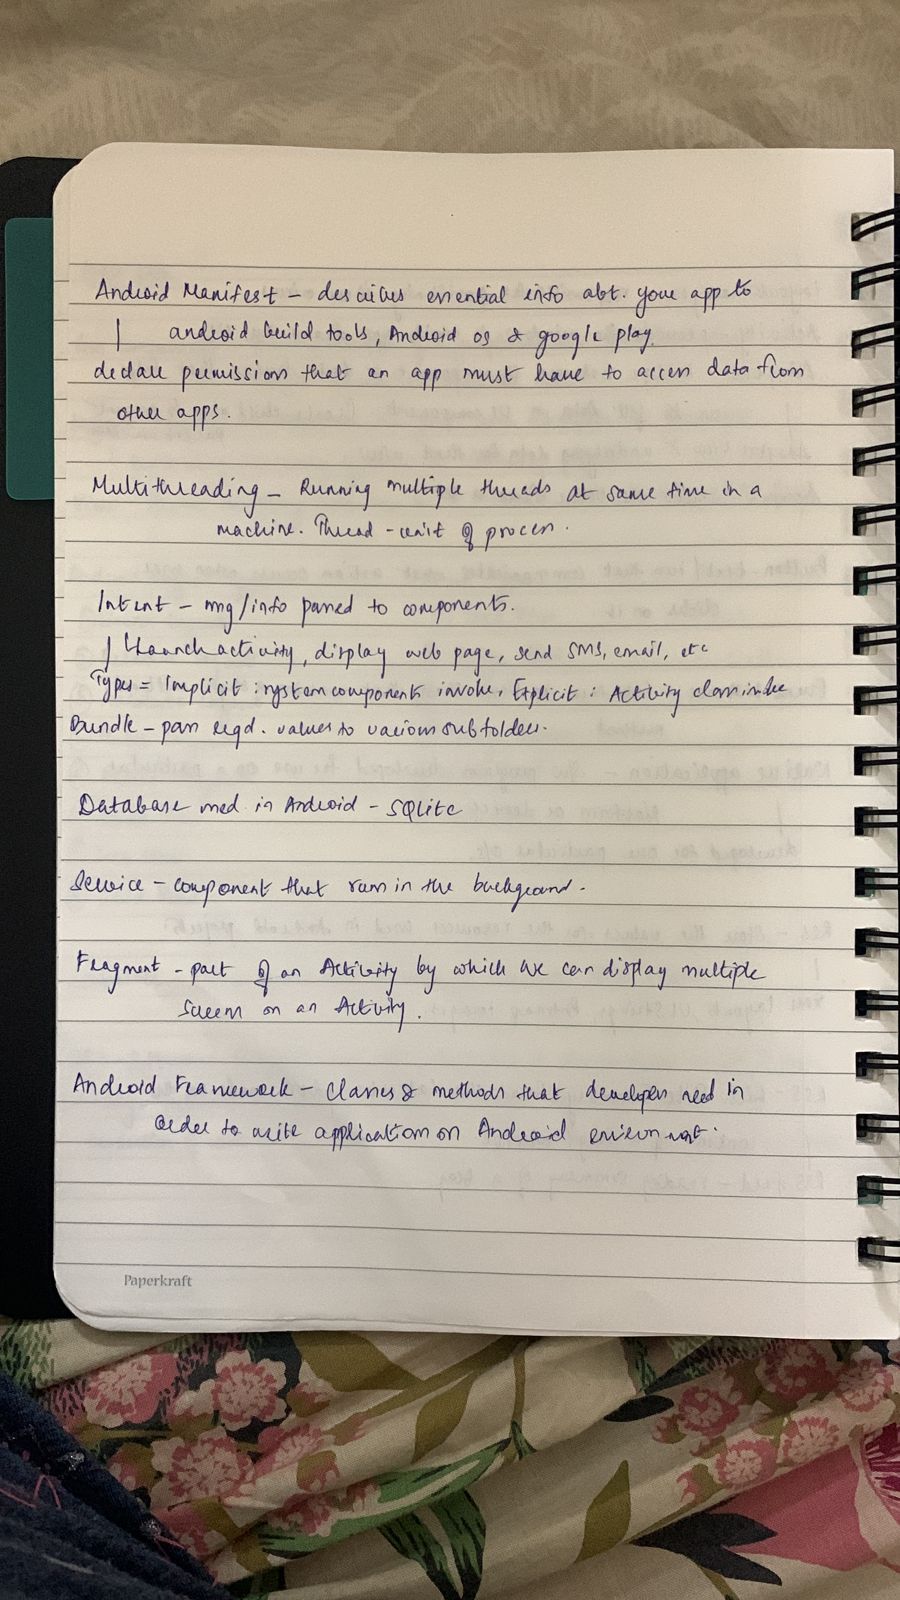 Android Manifest - describes essential info abt. your app to
android build tools, Android os & google play.
declare permissions that an app must have to access data from
other apps.
Multithreading - Running multiple threads at same time in a
machine. Thread - unit of process.
Intent - msg/info passed to components.
Launch activity, display web page, send SMS, email, etc
Types = Implicit : system components invoke, Explicit : Activity class invoke
Bundle - pass reqd. values to various subfolders.
Database used in Android - SQLite
Service - component that runs in the background.
Fragment - part of an Activity by which we can display multiple
screens on an Activity.
Android Framework - Classes & methods that developers need in
order to write application on Android environment.
Paperkraft